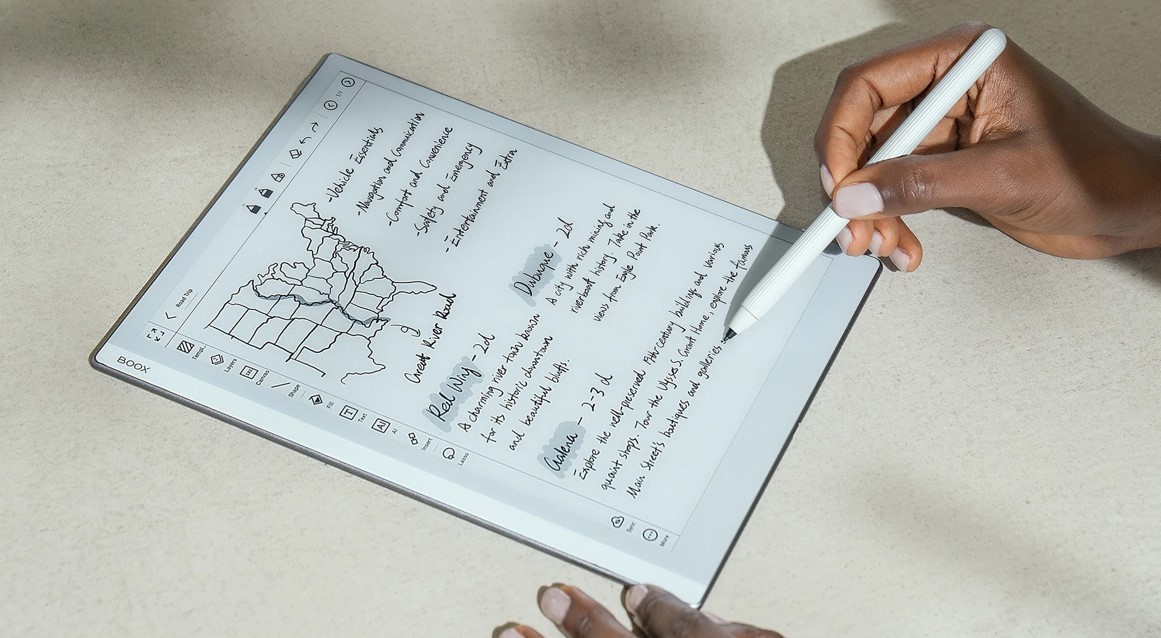 BOOX
Road Trip
1/1
Templ.
Layers
Canvas
Shape
Fill
Text
AI
AI
Insert
Lasso
Sync
More
-Vehicle Essentials
-Navigation and Communication
-Comfort and Convenience
-Safety and Emergency
-Entertainment and Extra
Great River Road
Red Wing - 2d
A charming river town known
for its historic downtown
and beautiful bluffs.
Dubuque - 2d
A city with rich mining and
riverboat history. Take in the
views from Eagle Point Park
Galena - 2-3 d
Explore the well-preserved, 19th century buildings and various
quaint shops. Tour the Ulysses S. Grant Home, explore the famous
Main Street's boutiques and galleries.